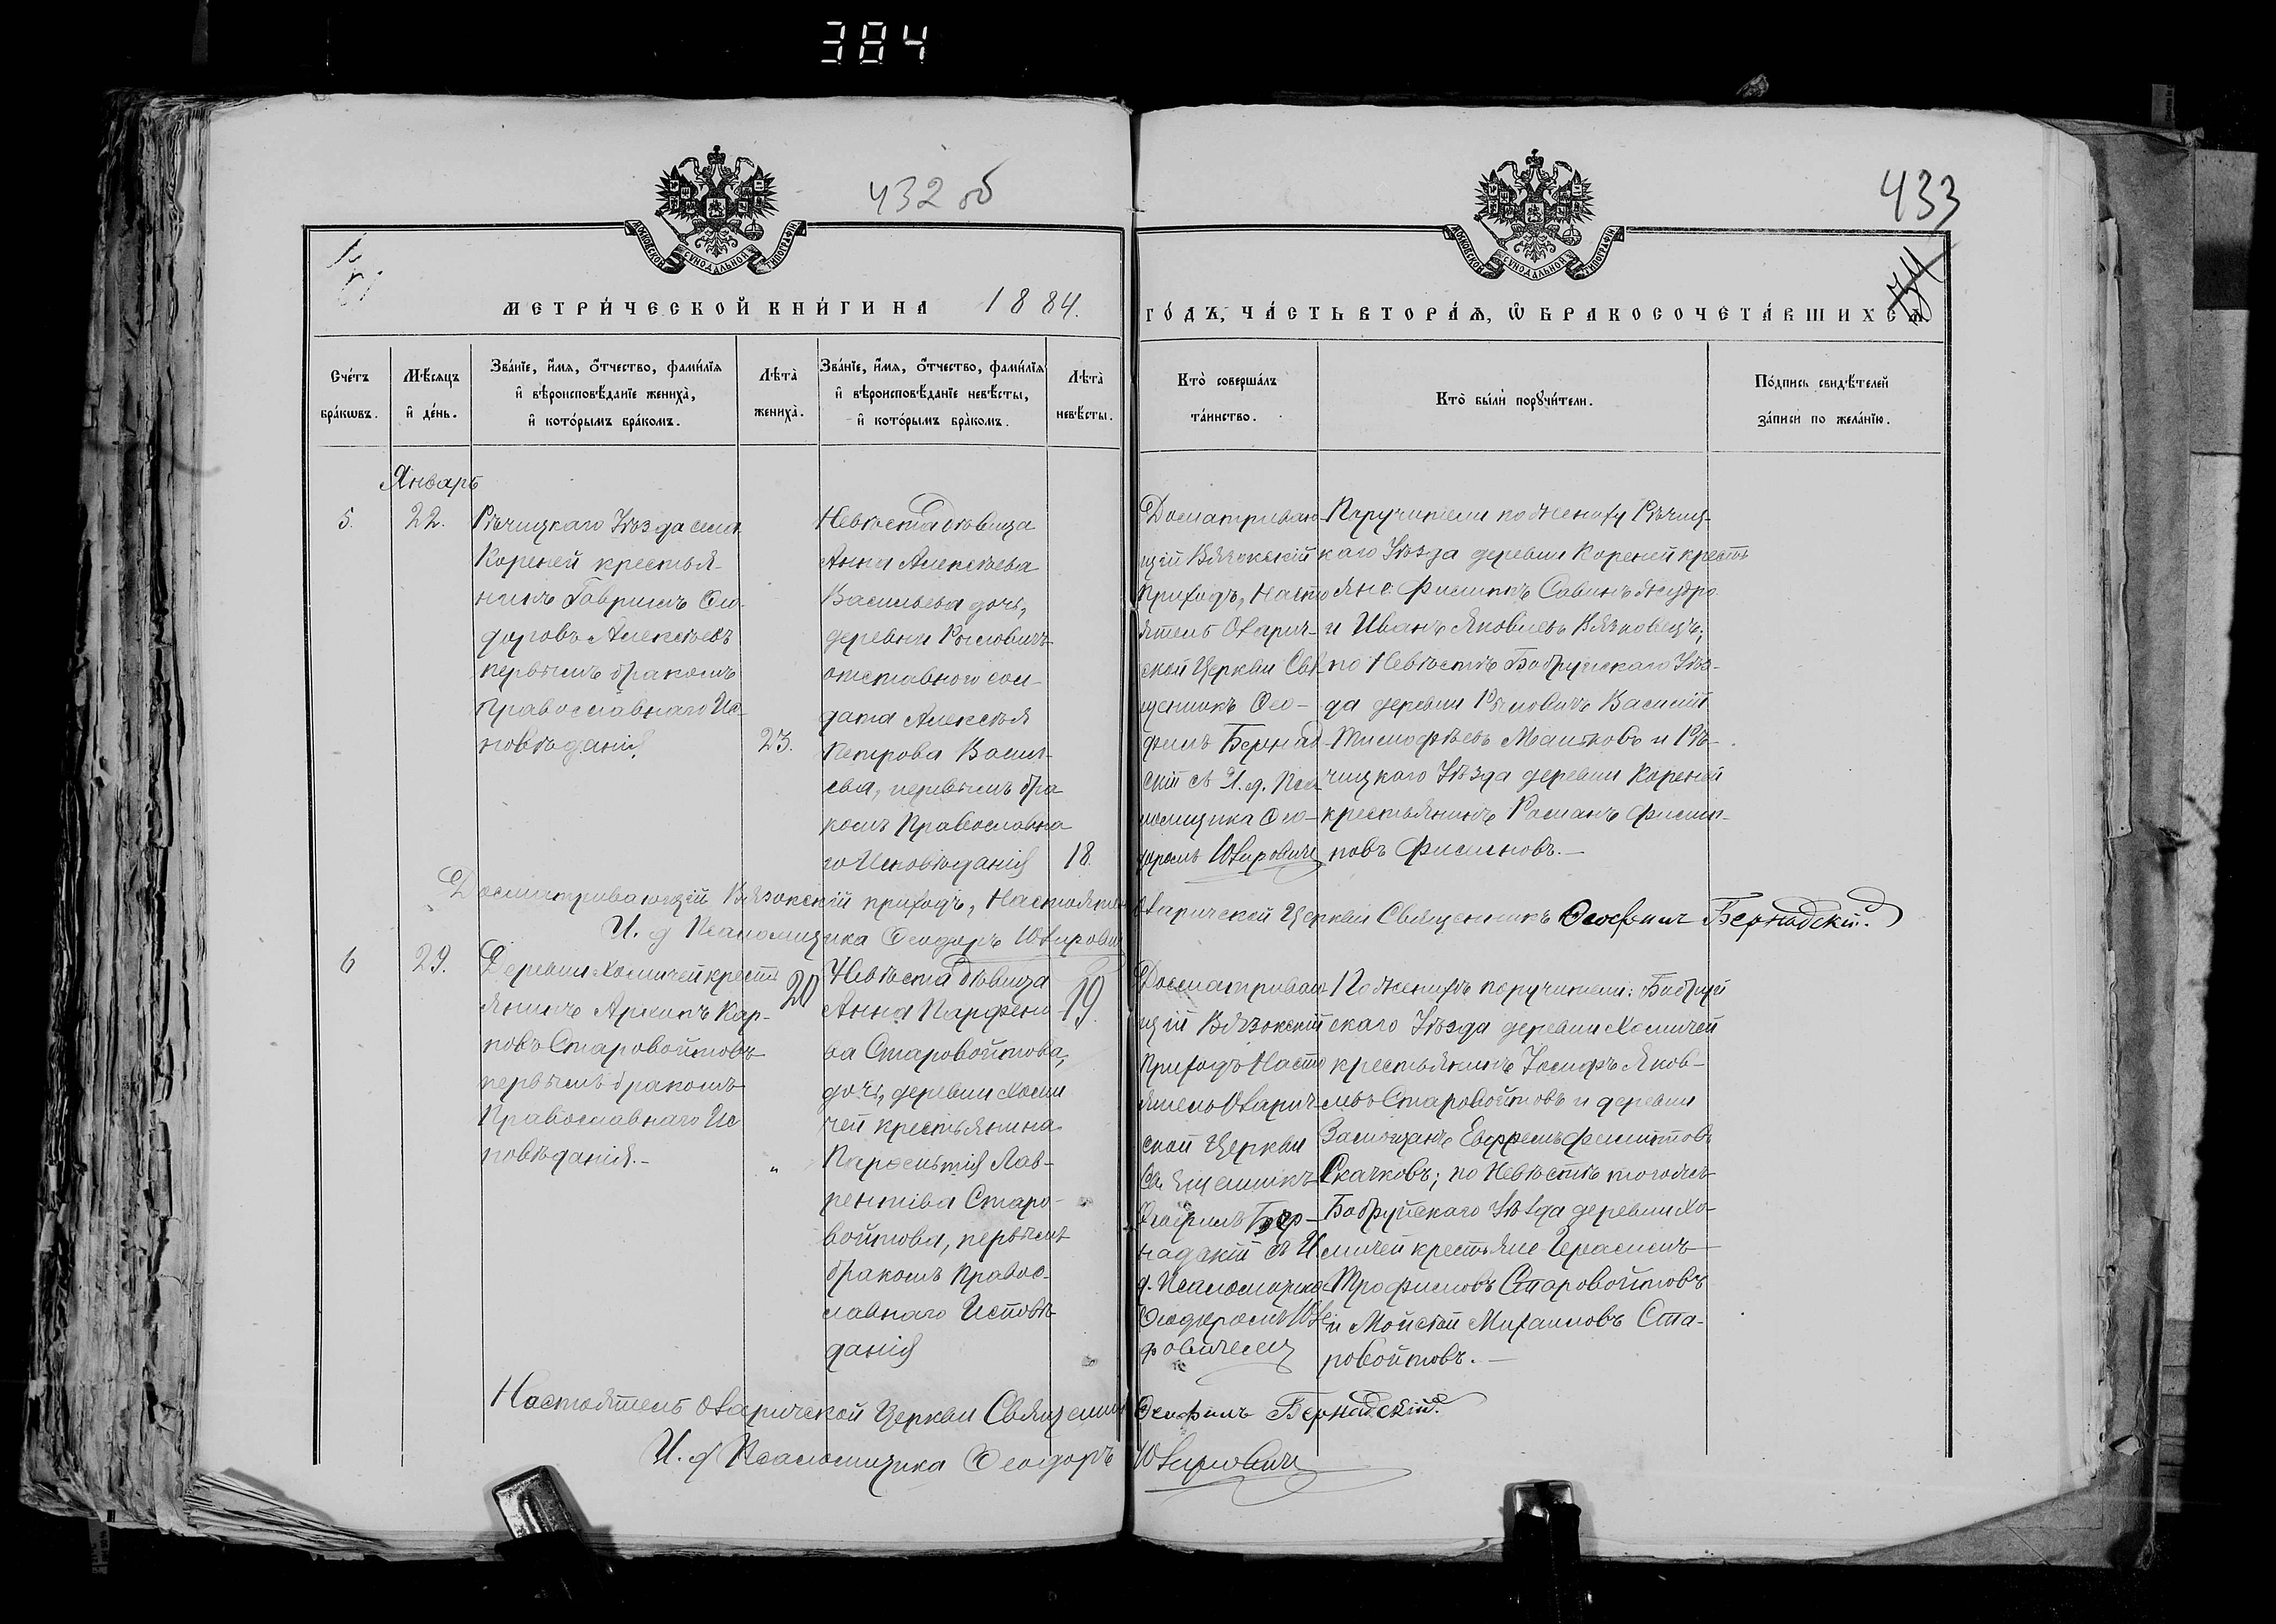 384
432 об
433
МОСКОВСКОЙ СѴНОДАЛЬНОЙ ТИПОГРАФІИ
МОСКОВСКОЙ СѴНОДАЛЬНОЙ ТИПОГРАФІИ
МЕТРИ́ЧЕСКОЙ КНИ́ГИ НА 1884.
ГО́ДЪ, ЧА́СТЬ ВТОРА́Ѧ, Ѽ БРАКОСОЧЕТА́ВШИХСѦ.
Сче́тъ
бра́кѡвъ.
Мѣ́сѧцъ
и҆ де́нь.
Зва́нїе, и҆́мѧ, ѻ҆́тчество, фами́лїѧ
и҆ вѣроисповѣ́данїе жениха̀,
и҆ кото́рымъ бра́комъ.
Лѣ́та
жениха̀.
Зва́нїе, и҆́мѧ, ѻ҆́тчество, фами́лїѧ
и҆ вѣроисповѣ́данїе невѣ́сты,
и҆ кото́рымъ бра́комъ.
Лѣ́та
невѣ́сты.
Кто̀ соверша́лъ
та́инство.
Кто̀ бы́ли порꙋчи́тели.
По́дпись свидѣ́телей
за́писи по жела́нїю.
Январь
5.
22.
Рѣчицкаго Уѣзда села
Кореней крестья-
нинъ Гавріилъ Ѳео-
доровъ Алексѣевъ
первымъ бракомъ
Православнаго Ис-
повѣданія.
23.
Невѣста дѣвица
Анна Алексѣева
Васильева дочь,
деревни
отставного сол-
дата Алексѣя
Петрова Василь-
ева, первымъ бра
комъ Православна
го Исповѣданія
18.
Досматриваю-
щій Вязокскій
приходъ, Насто
ятель Озарич-
ской Церкви Свя
щенникъ Ѳео-
филъ Бернад
скій съ И. д. Пса
ломщика Ѳео-
доромъ
Поручители по жениху Рѣчиц-
каго Уѣзда деревни Кореней кресть
яне: Филиппъ Савинъ
и Иванъ Яковлевъ Вязковецъ;
по Невѣстѣ Бобруйскаго Уѣз-
да деревни Василій
Тимофѣевъ и Рѣ-
чицкаго Уѣзда деревни Кореней
крестьянинъ Романъ Филип-
повъ Филиповъ.—
Досматривающій Вязокскій приходъ, Настоятель Озаричской Церкви Священникъ Ѳеофилъ Бернадскій.
И. д Псаломщика Ѳеодоръ
6
29.
Деревни Холмичей кресть
янинъ Архипъ Кар-
повъ Старовойтовъ
первымъ бракомъ
Православнаго Ис
повѣданія.—
20
„
Невѣста дѣвица
Анна Парфено
ва Старовойтова,
дочь, деревни Холми
чей крестьянина
Лав-
рентіева Старо-
войтова, первымъ
бракомъ Правос-
лавнаго Исповѣ-
данія
19.
Досматриваю
щій Вязокскій
приходъ Насто
ятель Озарич-
ской Церкви
Священникъ
Ѳеофилъ Бер-
надскій съ И.
д. Псаломщика
Ѳеодоромъ
По женихѣ поручители: Бобруй
скаго Уѣзда деревни Холмичей
крестьянинъ Іосифъ Яков-
левъ Старовойтовъ и деревни
Замощанъ Евфремъ Филиповъ
Скачковъ; по Невѣстѣ тогожъ
Бобруйскаго Уѣзда деревни Хо-
лмичей крестьяне Герасимъ
Трофимовъ Старовойтовъ
и Мойсей Михаиловъ Ста-
ровойтовъ.—
Настоятель Озаричской Церкви Священникъ Ѳеофилъ Бернадскій.
И. д Псаломщика Ѳеодоръ